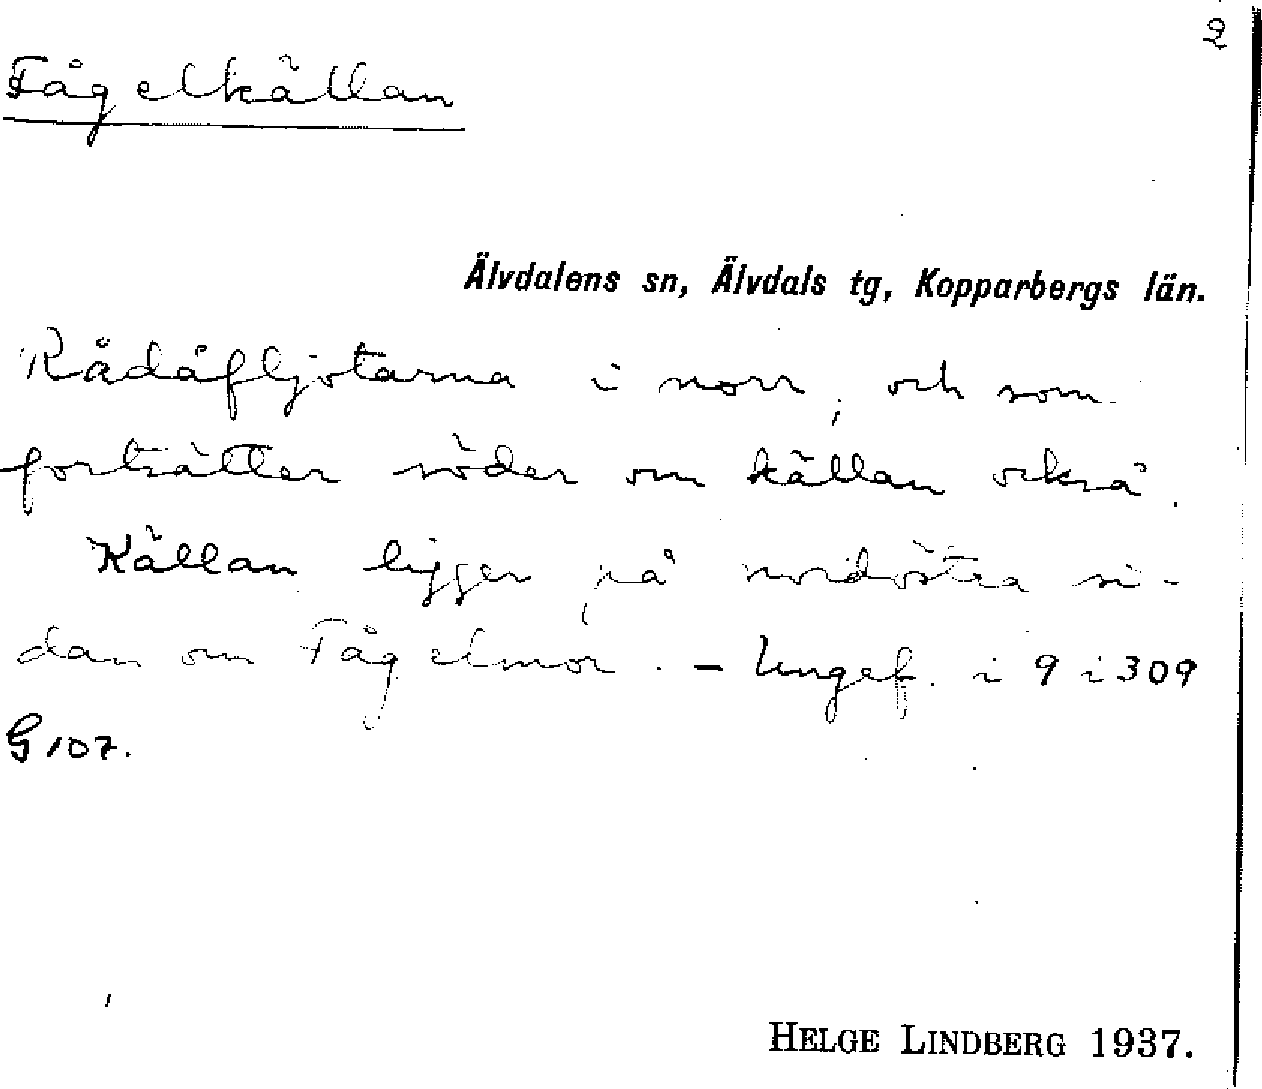 2
Fågelkällan
Älvdalens sn, Älvdals tg, Kopparbergs län.
Rådåfljotarna i norr, och som
fortsätter söder om källan också.
Källan ligger på nordöstra si-
dan om Fågelmor. - Ungef. i 9 i 309
G 107.
HELGE LINDBERG 1937.